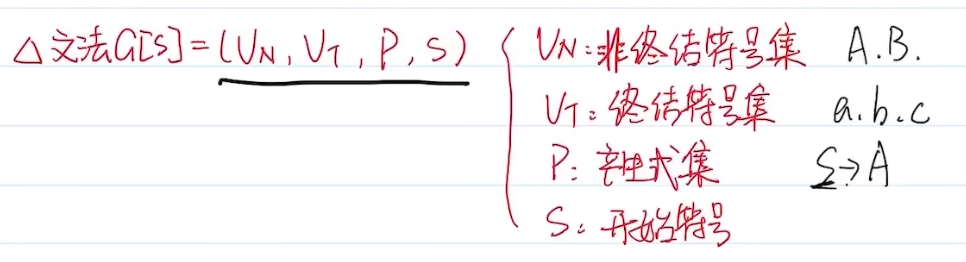 △文法G[S]=(VN,VT,P,S)
VN:非终结符号集 A.B.
VT:终结符号集 a.b.c
P:产生式集 S→A
S:开始符号